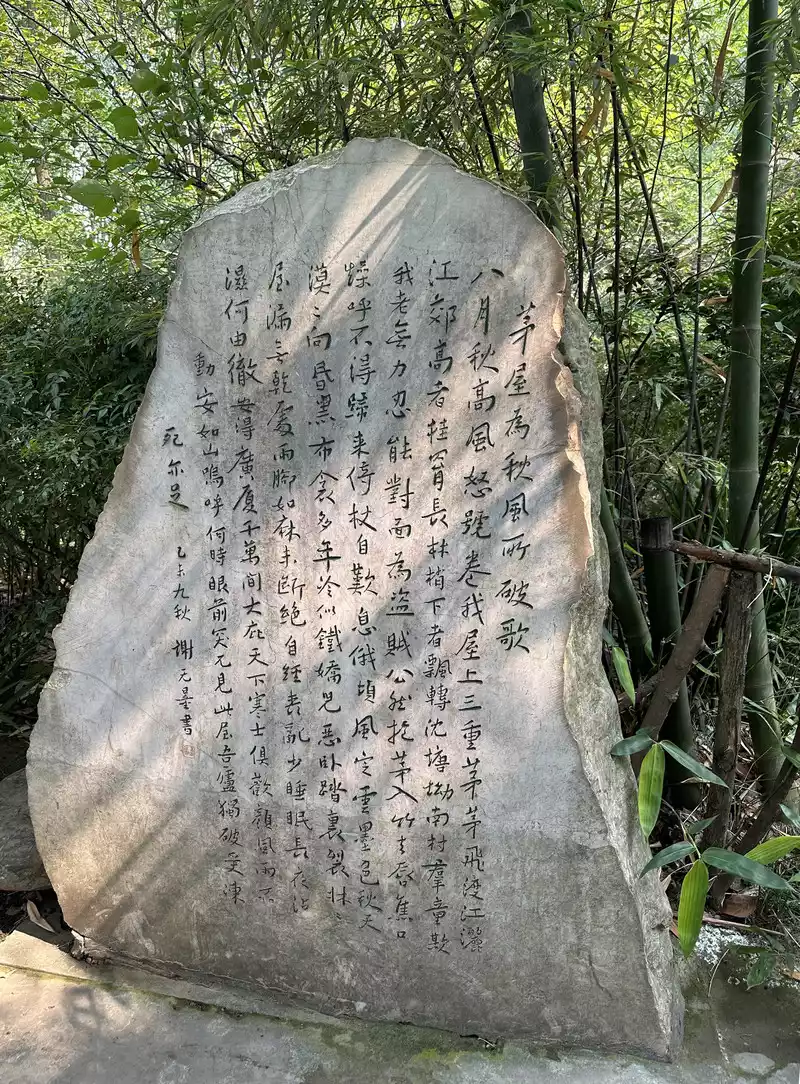 茅屋為秋風所破歌
八月秋高風怒號卷我屋上三重茅茅飛渡江灑
江郊高者挂罥長林梢下者飄轉沈塘坳南村羣童欺
我老無力忍能對面為盜賊公然抱茅入竹去唇焦口
燥呼不得歸來倚杖自歎息俄頃風定雲墨色秋天
漠〻向昏黑布衾多年冷似鐵嬌兒惡臥踏裏裂牀〻
屋漏無乾處雨腳如麻未斷絕自經喪亂少睡眠長夜沾
濕何由徹安得廣廈千萬間大庇天下寒士俱歡顏風雨不
動安如山嗚呼何時眼前突兀見此屋吾廬獨破受凍
死亦足 乙未九秋 謝无量書